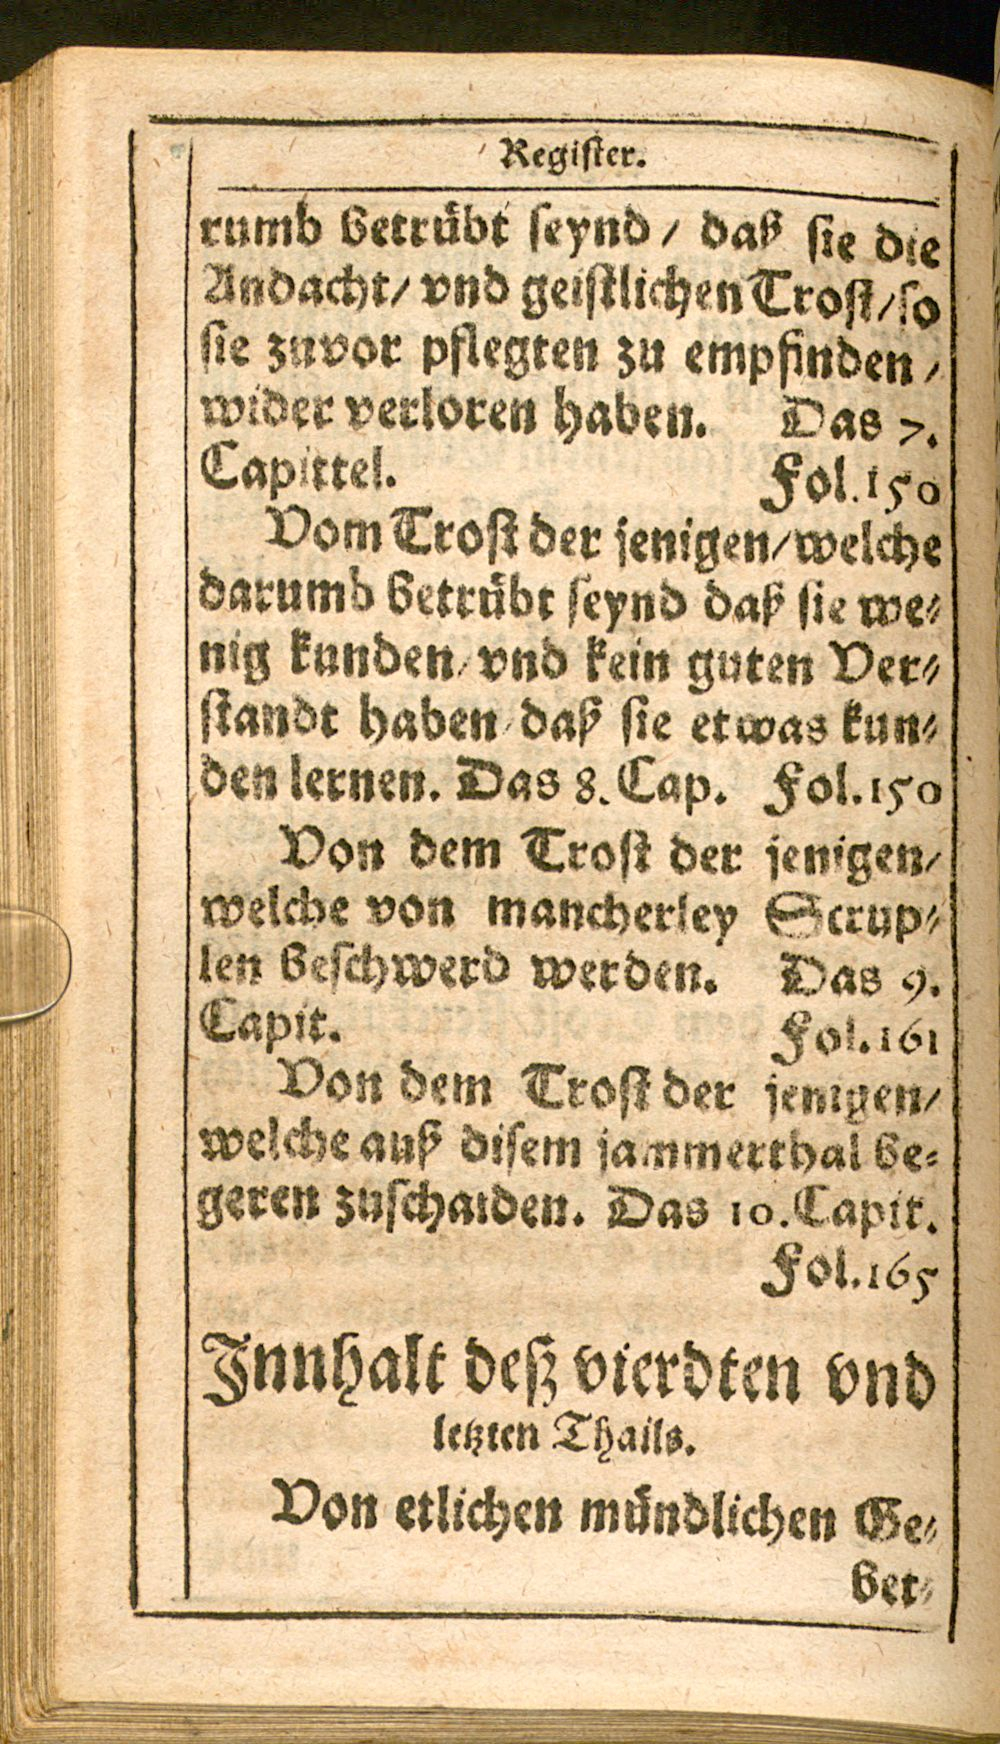 Register.
rumb betrübt seynd / daß sie die
Andacht / vnd geistlichen Trost / so
sie zuvor pflegten zu empfinden /
wider verloren haben. Das 7.
Capittel. Fol. 150
Vom Trost der jenigen / welche
darumb betrübt seynd daß sie we⸗
nig kunden / vnd kein guten Ver⸗
standt haben / daß sie etwas kun⸗
den lernen. Das 8. Cap. Fol. 150
Von dem Trost der jenigen /
welche von mancherley Scrup⸗
len beschwerd werden. Das 9.
Capit. Fol. 161
Von dem Trost der jenigen /
welche auß disem jammerthal be⸗
geren zuschaiden. Das 10. Capit.
Fol. 165
Innhalt deß vierdten vnd
letzten Thails.
Von etlichen mündlichen Ge⸗
bet⸗